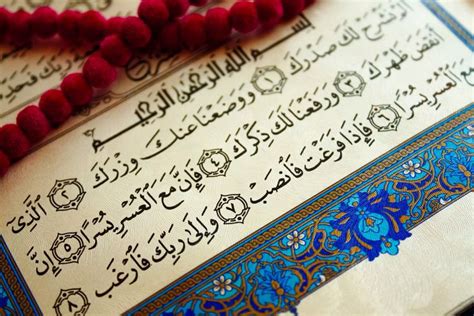 رَبِّكَ
بِسْمِ اللَّهِ الرَّحْمَٰنِ الرَّحِيمِ
أَلَمْ نَشْرَحْ لَكَ صَدْرَكَ ١ وَوَضَعْنَا عَنكَ وِزْرَكَ ٢ الَّذِي
أَنقَضَ ظَهْرَكَ ٣ وَرَفَعْنَا لَكَ ذِكْرَكَ ٤ فَإِنَّ مَعَ الْعُسْرِ يُسْرًا ٥ إِنَّ
مَعَ الْعُسْرِ يُسْرًا ٦ فَإِذَا فَرَغْتَ فَانصَبْ ٧ وَإِلَىٰ رَبِّكَ فَارْغَب ٨